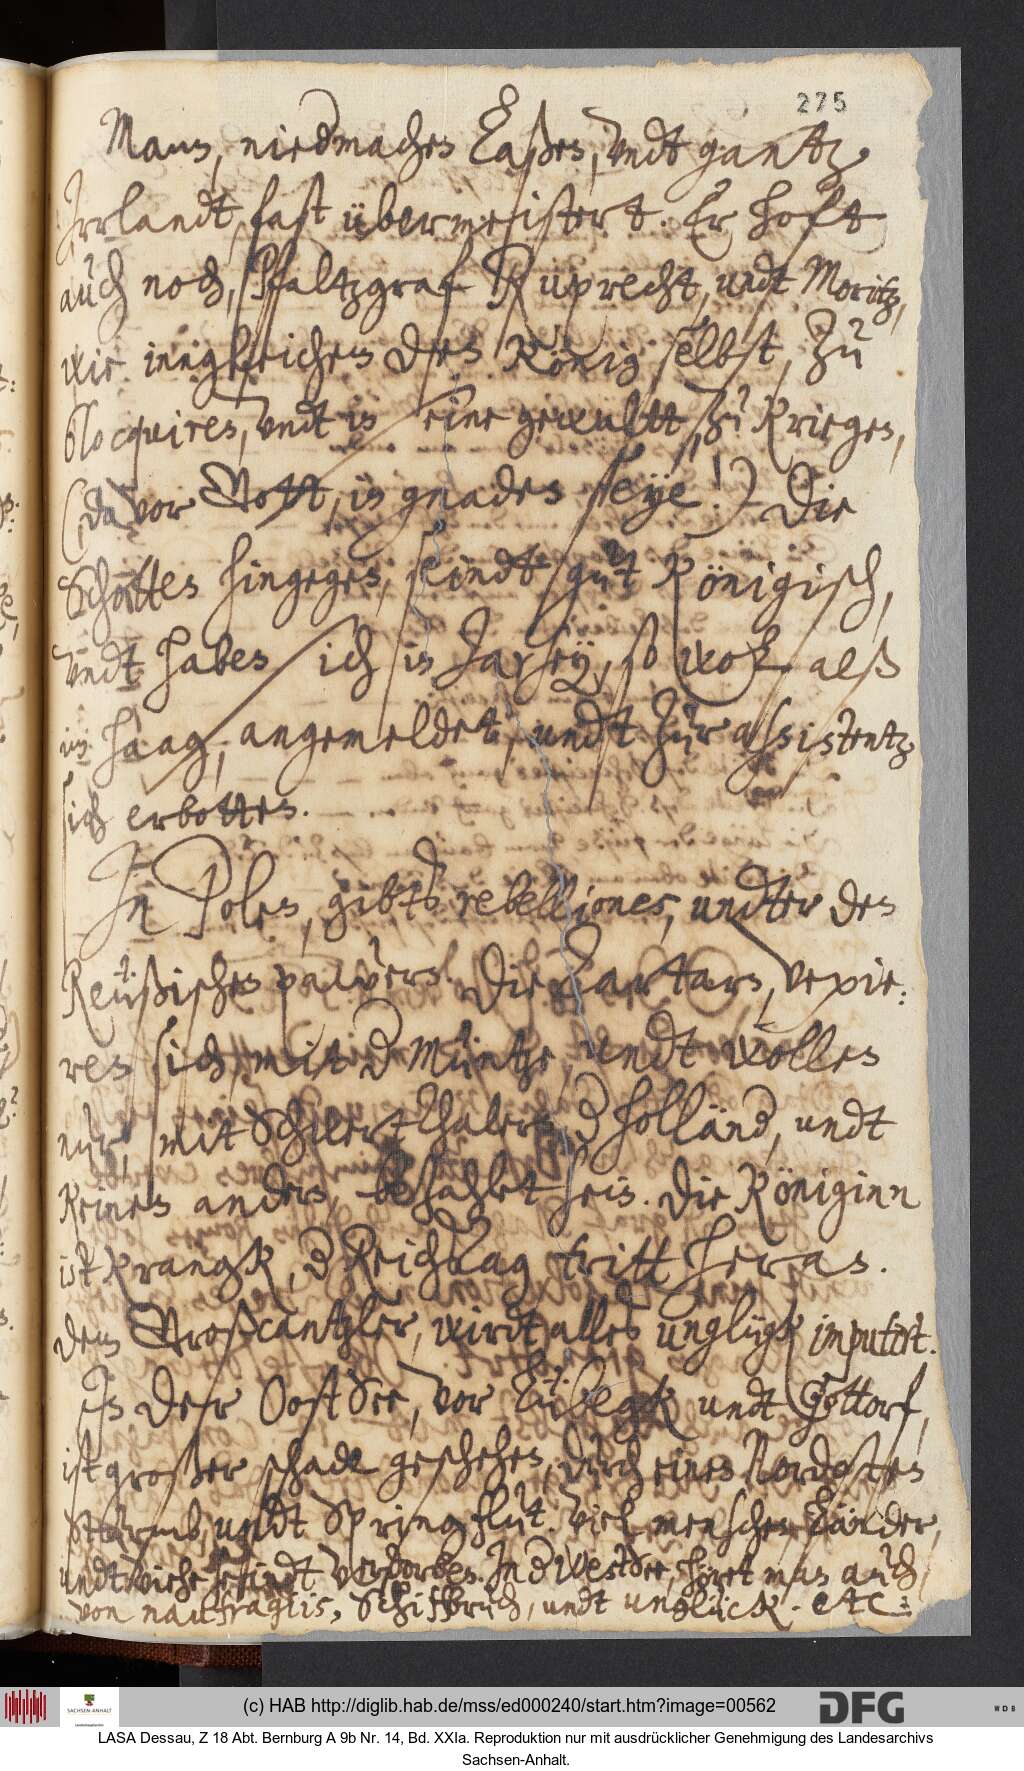 275
Mann, niedmachen Laßen, undt gantz
Irrlandt, fast übermeistert. Er hoft
auch noch, Pfaltzgraf Ruprecht, undt Moritz,
wie ingleichen den König selbst, zu
blocquiren, undt in seine gewaltt, zu kriegen,
(da vor Gott, in gnaden seye!) Die
Schotten hingegen, seindt gut Königisch,
undt haben sich in Jarsey, so wol alß
im Haag, angemeldet, undt zur assistentz
sich erbotten.
In Polen, gibts rebelliones, undter den
Reußischen pawern. Die Tartarn, vexie:
ren sich, mit der Müntze, undt wollen
nur, mit Schlert Thalern, der Holländ, undt
keinen andern, bezahlet sein. Die Königinn
ist kranck, der ReichsTag tritt heran.
dem Großcantzler, wirdt alles unglück imputirt.
In der OostSee, vor Lübegk undt Gottorf,
ist großer schade geschehen, durch einen Nordosten
Sturmb, undt Springflut. Viel menschen, Länder,
undt viehe seindt verdorben. In der WestSee, höret man auch,
von naufragiis, Schifbruch, undt unglück. etc.:
(c) HAB http://diglib.hab.de/mss/ed000240/start.htm?image=00562
SACHSEN-ANHALT
DFG
WDB
LASA Dessau, Z 18 Abt. Bernburg A 9b Nr. 14, Bd. XXIa. Reproduktion nur mit ausdrücklicher Genehmigung des Landesarchivs
Sachsen-Anhalt.